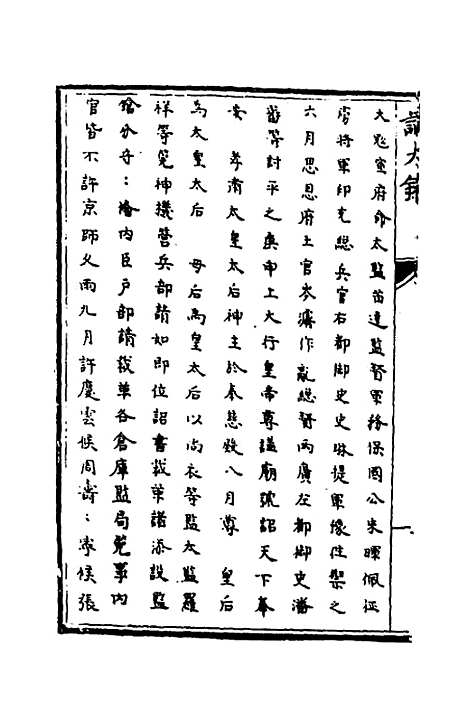 大懟宣府命太監苗逵監督軍務保國公朱暉佩征
虜將軍印充總兵官右都御史史琳提軍務往禦之
六月思恩府土官岑濬作亂總督兩廣左都御史潘
蕃等討平之庚申上大行皇帝尊謚廟號詔天下奉
安 孝肅太皇太后神主於奉慈殿八月尊 皇后
為太皇太后 母后為皇太后以尚衣等監太監羅
祥等筦神機營兵部請如即位詔書裁革諸添設監
鎗分守：檜內臣戶部請裁革各倉庫監局筦事內
官皆不許京師久雨九月許慶雲侯周壽：寧侯張